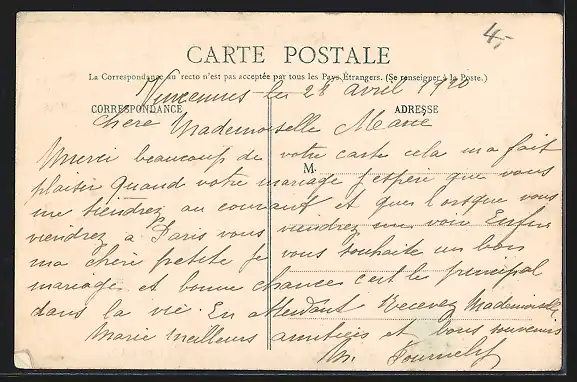 4.-
CARTE POSTALE
La Correspondance au recto n'est pas acceptée par tous les Pays Étrangers. (Se renseigner à la Poste.)
Vincennes les 28 avril 1910
CORRESPONDANCE
ADRESSE
Chère Mademoiselle Marie
M.
Merci beaucoup de votre carte cela ma fait
plaisir Quand votre mariage j'espère que vous
me tiendrez au courant et que lorsque vous
viendrez à Paris vous viendrez me voir Enfin
ma chère petite je vous souhaite un bon
mariage et bonne chance c'est le principal
dans la vie. En attendant Recevez Mademoiselle
Marie meilleurs amitiés et bons souvenirs
M.